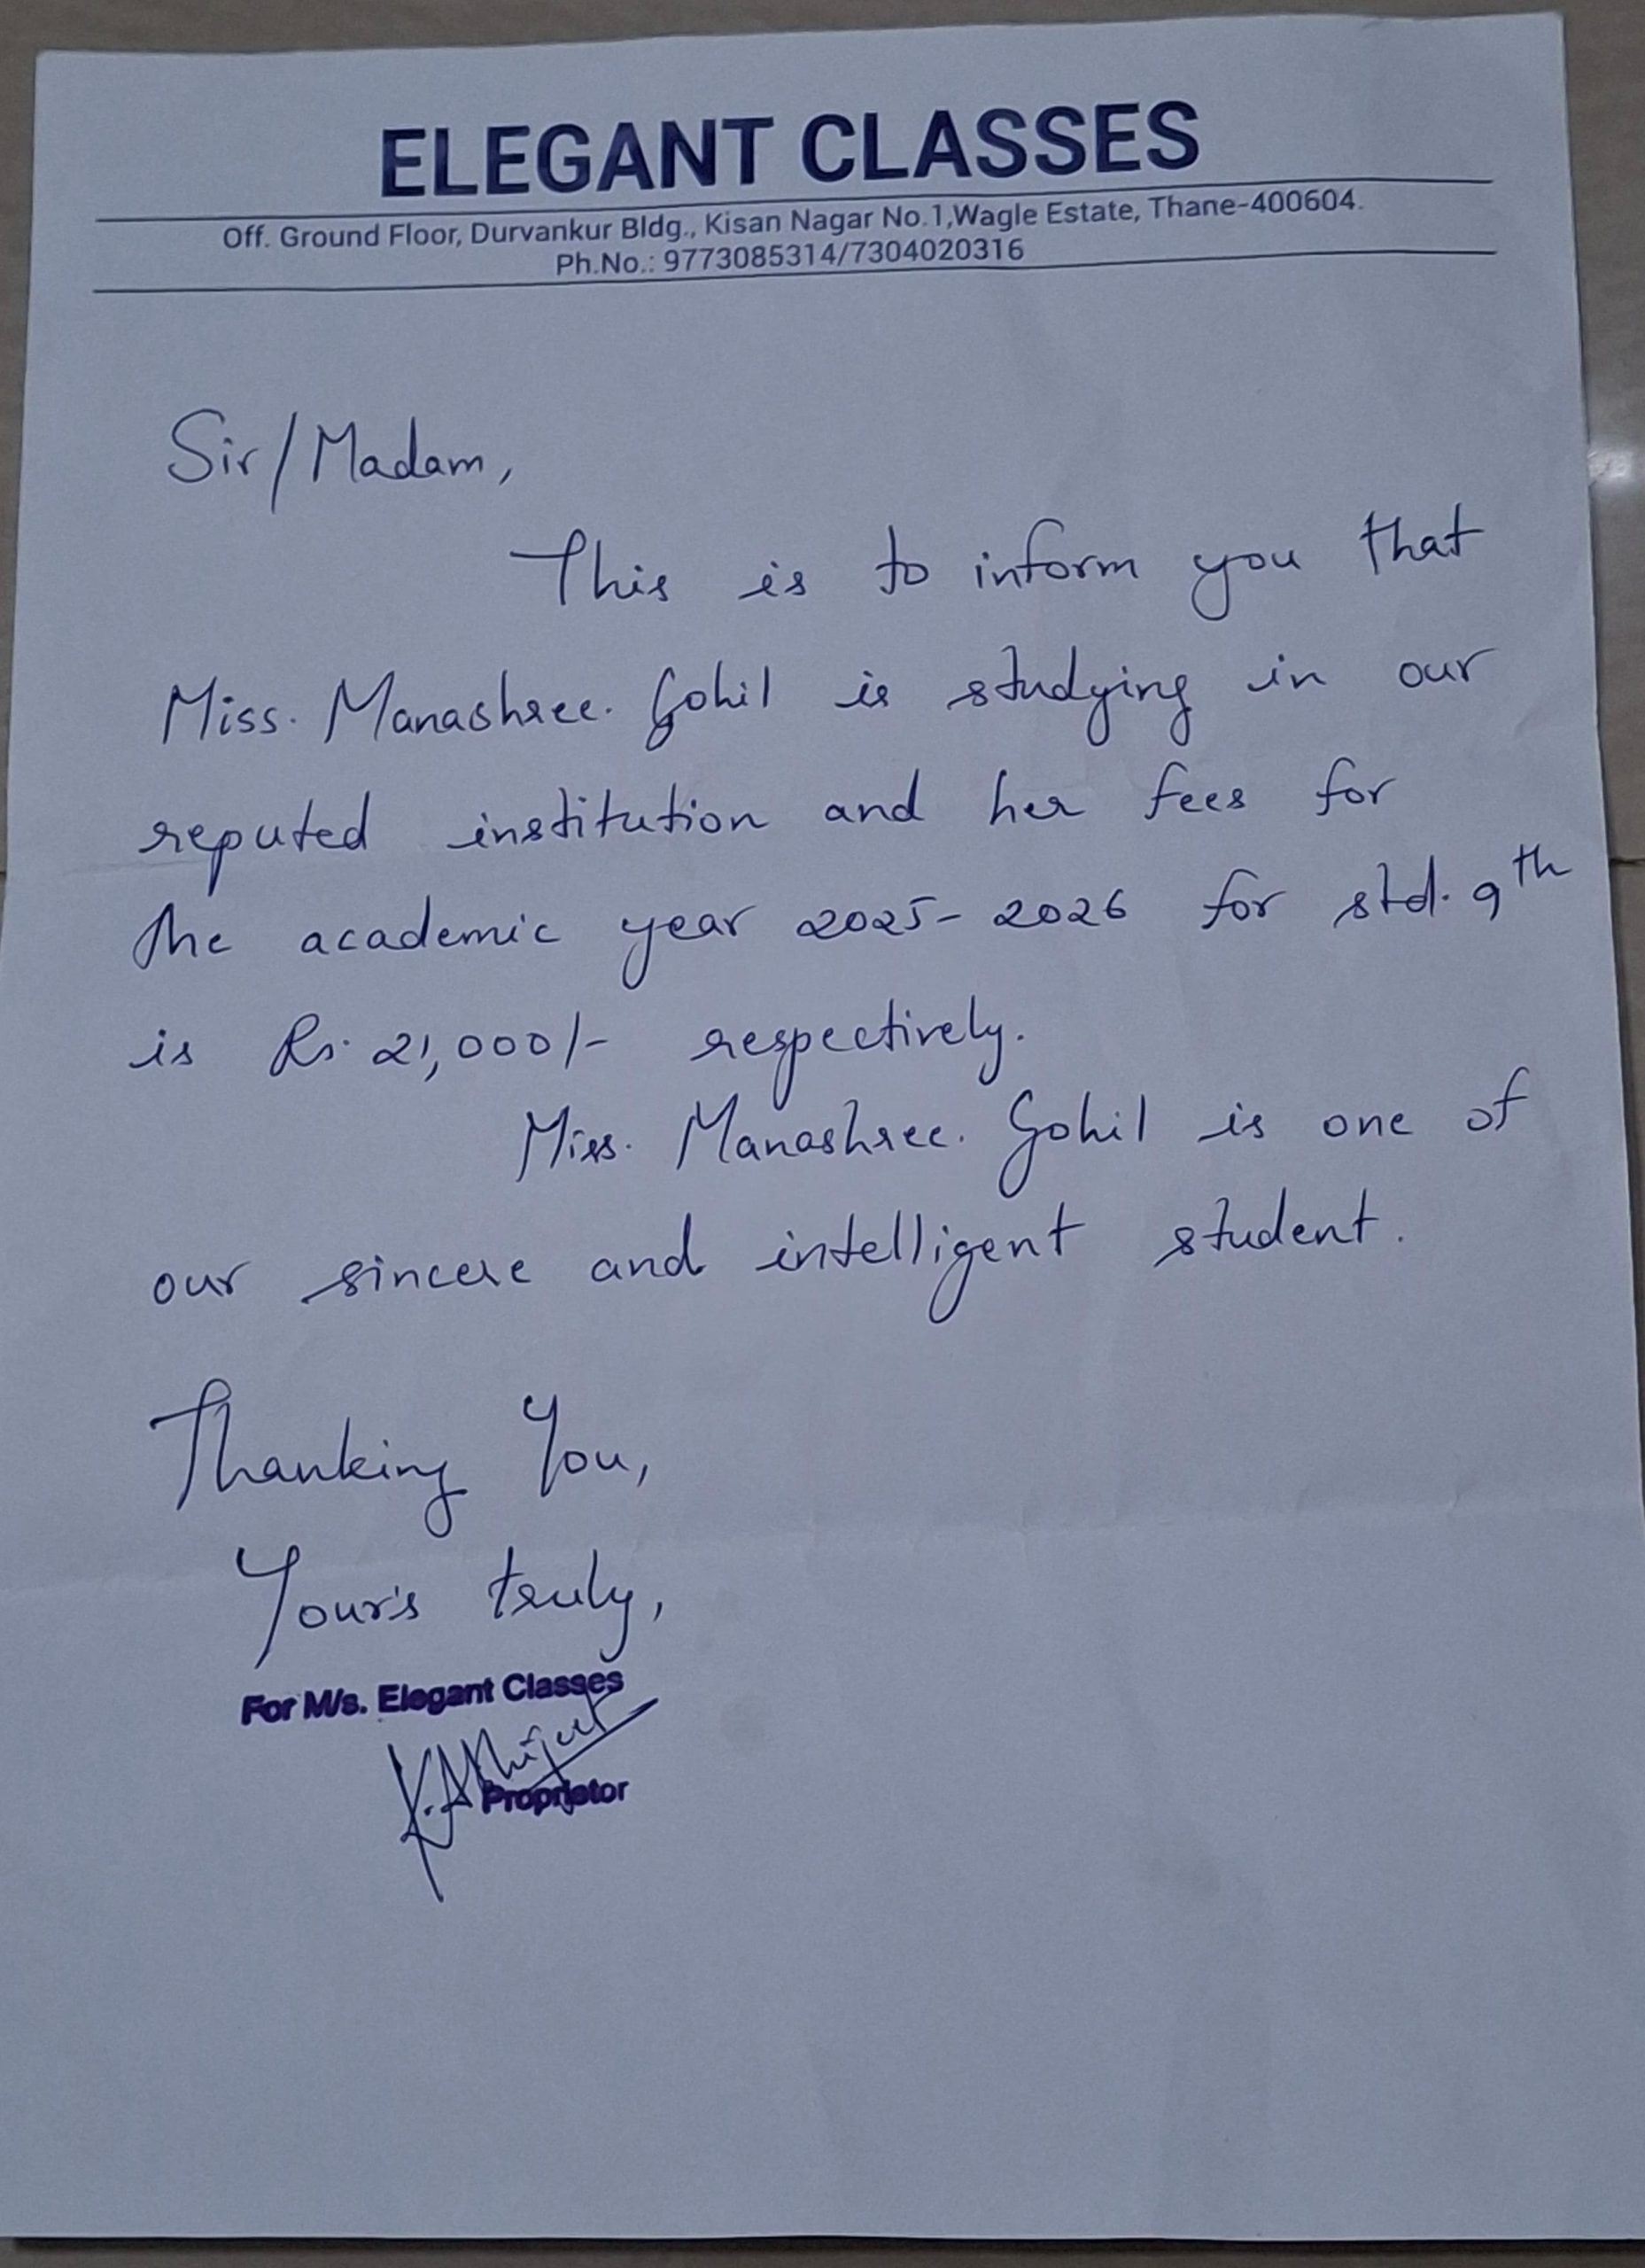 ELEGANT CLASSES
Off. Ground Floor, Durvankur Bldg., Kisan Nagar No.1,Wagle Estate, Thane-400604.
Ph.No.: 9773085314/7304020316
Sir/Madam,
This is to inform you that
Miss. Manashree. Gohil is studying in our
reputed institution and her fees for
the academic year 2025-2026 for std. 9th
is Rs. 21,000/- respectively.
Miss. Manashree. Gohil is one of
our sincere and intelligent student.
Thanking You,
Your's truly,
For M/s. Elegant Classes
Proprietor